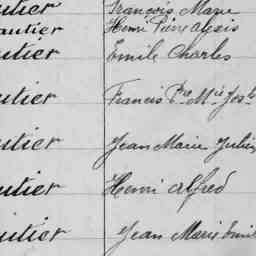 utier François Marie
autier Henri Pierre Alexis
utier Emile Charles
utier Francis Pre Mie Josh
utier Jean Marie Julien
utier Henri Alfred
utier Jean Marie Emil